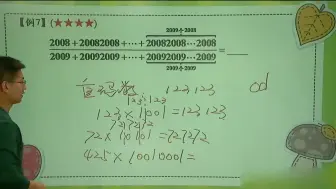 【例7】(★★★★)
2009个2008
2008+20082008+⋯+20082008⋯2008
2009+20092009+⋯+20092009⋯2009
=____
2009个2009
重码数 123123
cd
123×1001=123123
72×10101=727272
425×1001001=